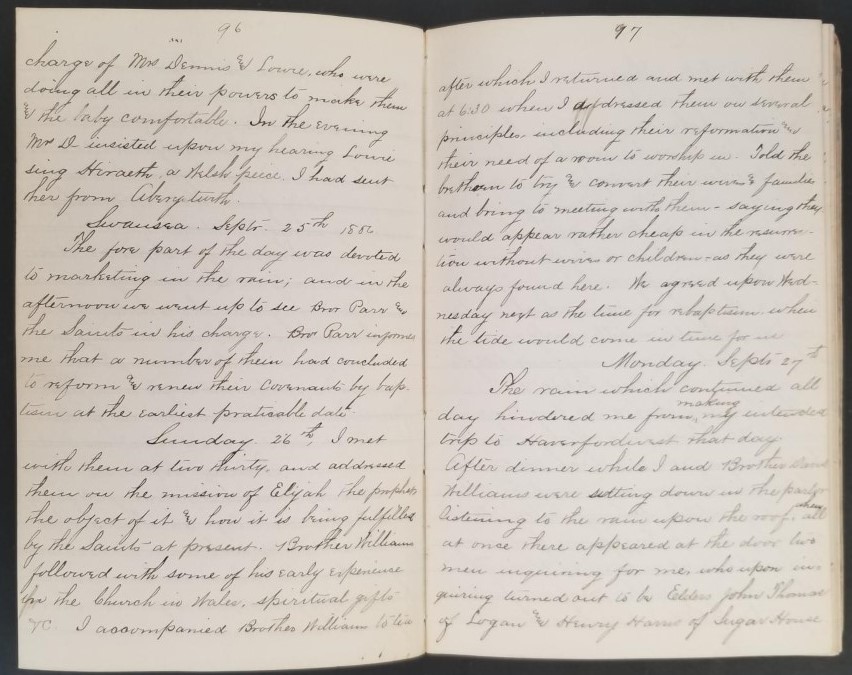 96
charge of Mrs Dennis & Lowie, who were
doing all in their powers to make them
& the baby comfortable. In the evening
Mr D- insisted upon my hearing Lowie
sing Hiraeth, a Welsh piece, I had sent
her from Aberystwith.
Swansea. Septr. 25th 1886
The fore part of the day was devoted
to marketing in the rain; and in the
afternoon we went up to see Bror Parr &
the Saints in his charge. Bror Parr informs
me that a number of them had concluded
to reform & renew their Covenants by bap-
tism at the earliest praticable date.
Sunday. 26th, I met
with them at two thirty, and addressed
them on the mission of Elijah the prophet
the object of it & how it is being fulfilled
by the Saints at present. Brother Williams
followed with some of his early experience
in the Church in Wales, spiritual gifts
&C. I accompanied Brother Williams to tea
97
after which I returned and met with them
at 6:30 when I addressed them on several
principles including their reformation &
their need of a room to worship in. Told the
brethren to try & convert their wives & families
and bring to meeting with them - saying they
would appear rather cheap in the resurrec-
tion without wives or children - as they were
always found here. We agreed upon Wed-
nesday next as the time for rebaptism when
the tide would come in time for us
Monday. Septr 27th
The rain which continued all
day hindered me from making my intended
trip to Haverfordwest that day
After dinner while I and Brother
Williams were sitting down in the parlor
listening to the rain upon the roof, when all
at once there appeared at the door two
men inquiring for me, who upon in-
quiring turned out to be Elders John Thomas
of Logan & Henry Harris of Sugar House